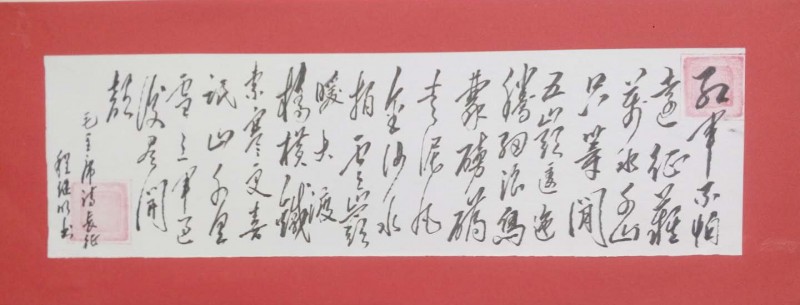 红军不怕
遠征難
萬水千山
只等闲
五嶺逶迤
騰细浪烏
蒙磅礴
走泥丸
金沙水
拍雲崖
暖大渡
橋横鐵
索寒更喜
岷山千里
雪三军过
後尽開
颜
毛主席诗长征
程
书